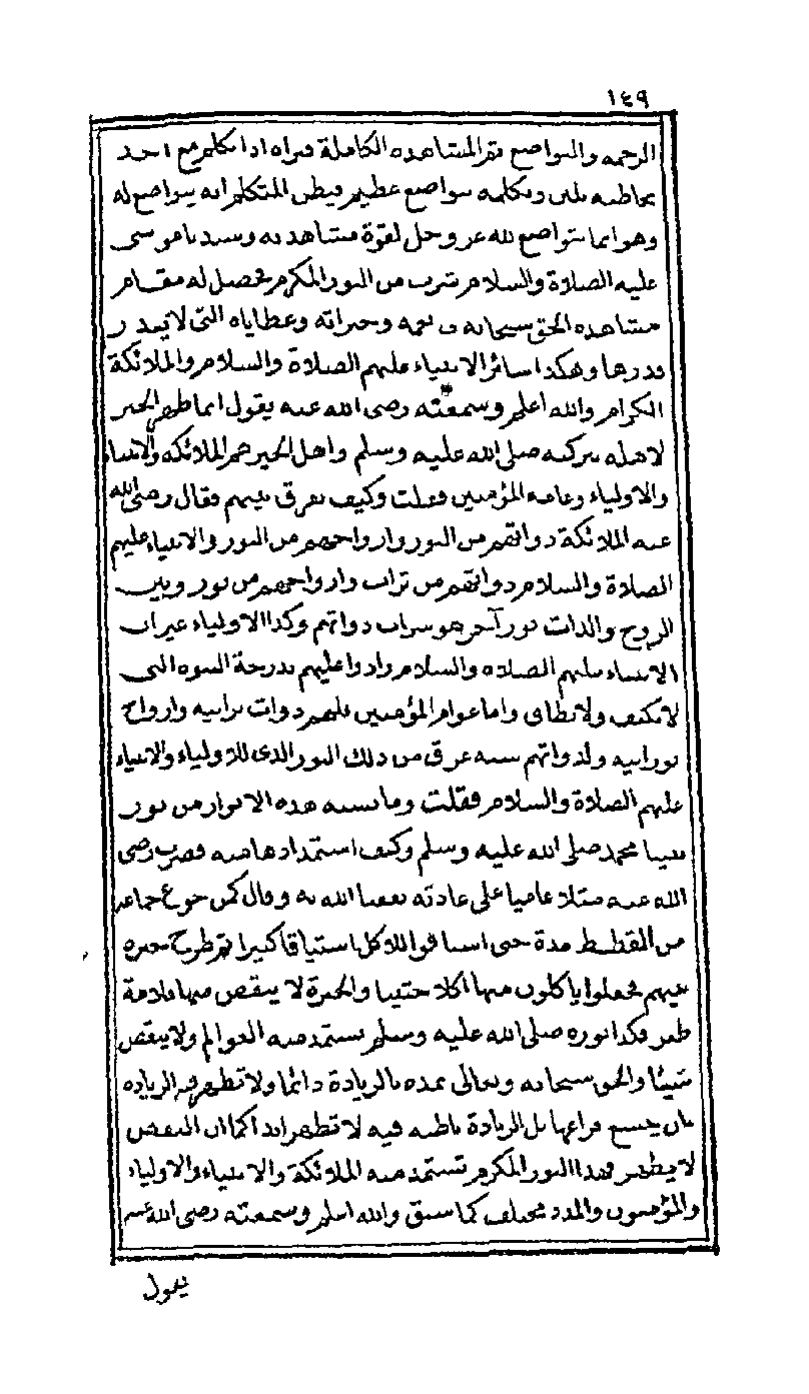 ١٤٩
الرحمة والتواضع ثم المشاهدة الكاملة فتراه اذا تكلم مع احد
يخاطبه بلين ويكلمه بتواضع عظيم فيظن المتكلم انه يتواضع له
وهو انما يتواضع لله عز وجل لقوة مشاهدته وسيدنا موسى
عليه الصلاة والسلام شرب من النور المكرم فحصل له مقام
مشاهدة الحق سبحانه في نعمه وخيراته وعطاياه التى لا يقدر
قدرها وهكذا سائر الانبياء عليهم الصلاة والسلام والملائكة
الكرام والله اعلم وسمعته رضى الله عنه يقول انما ظهر الخير
لاهله ببركته صلى الله عليه وسلم واهل الخير هم الملائكة والانبياء
والاولياء وعامة المؤمنين فقلت وكيف نفرق بينهم فقال رضى الله
عنه الملائكة ذواتهم من النور وارواحهم من النور والانبياء عليهم
الصلاة والسلام ذواتهم من تراب وارواحهم من نور وبين
الروح والذات نور آخر هو شراب ذواتهم وكذا الاولياء غير ان
الانبياء عليهم الصلاة والسلام زادوا عليهم بدرجة النبوة التى
لا تكيف ولا تطاق واما عوام المؤمنين فلهم ذوات ترابيه وارواح
نورانيه ولذواتهم شبه عرق من ذلك النور الذى للاولياء والانبياء
عليهم الصلاة والسلام فقلت وما نسبة هذه الانوار من نور
نبينا محمد صلى الله عليه وسلم وكيف استمدادها منه فضرب رضى
الله عنه مثلا عاميا على عادته نفعنا الله به وقال كمن جوع جماعة
من القطط مدة حتى اشتاقوا للاكل اشتياقا كبيرا ثم طرح خبزة
بينهم فجعلوا ياكلون منها اكلا حثيثا والخبزة لا ينقص منها قلامة
ظفر فكذا نوره صلى الله عليه وسلم تستمد منه العوالم ولا ينقص
شيئا والحق سبحانه وتعالى يمده بالزيادة دائما ولا تظهر فيه الزيادة
بان يتسع فراغها بل الزيادة باطنة فيه لا تظهر ابدا كما ان النقص
لا يظهر فهذا النور المكرم تستمد منه الملائكة والانبياء والاولياء
والمؤمنون والمدد مختلف كما سبق والله اعلم وسمعته رضى الله عنه
يقول